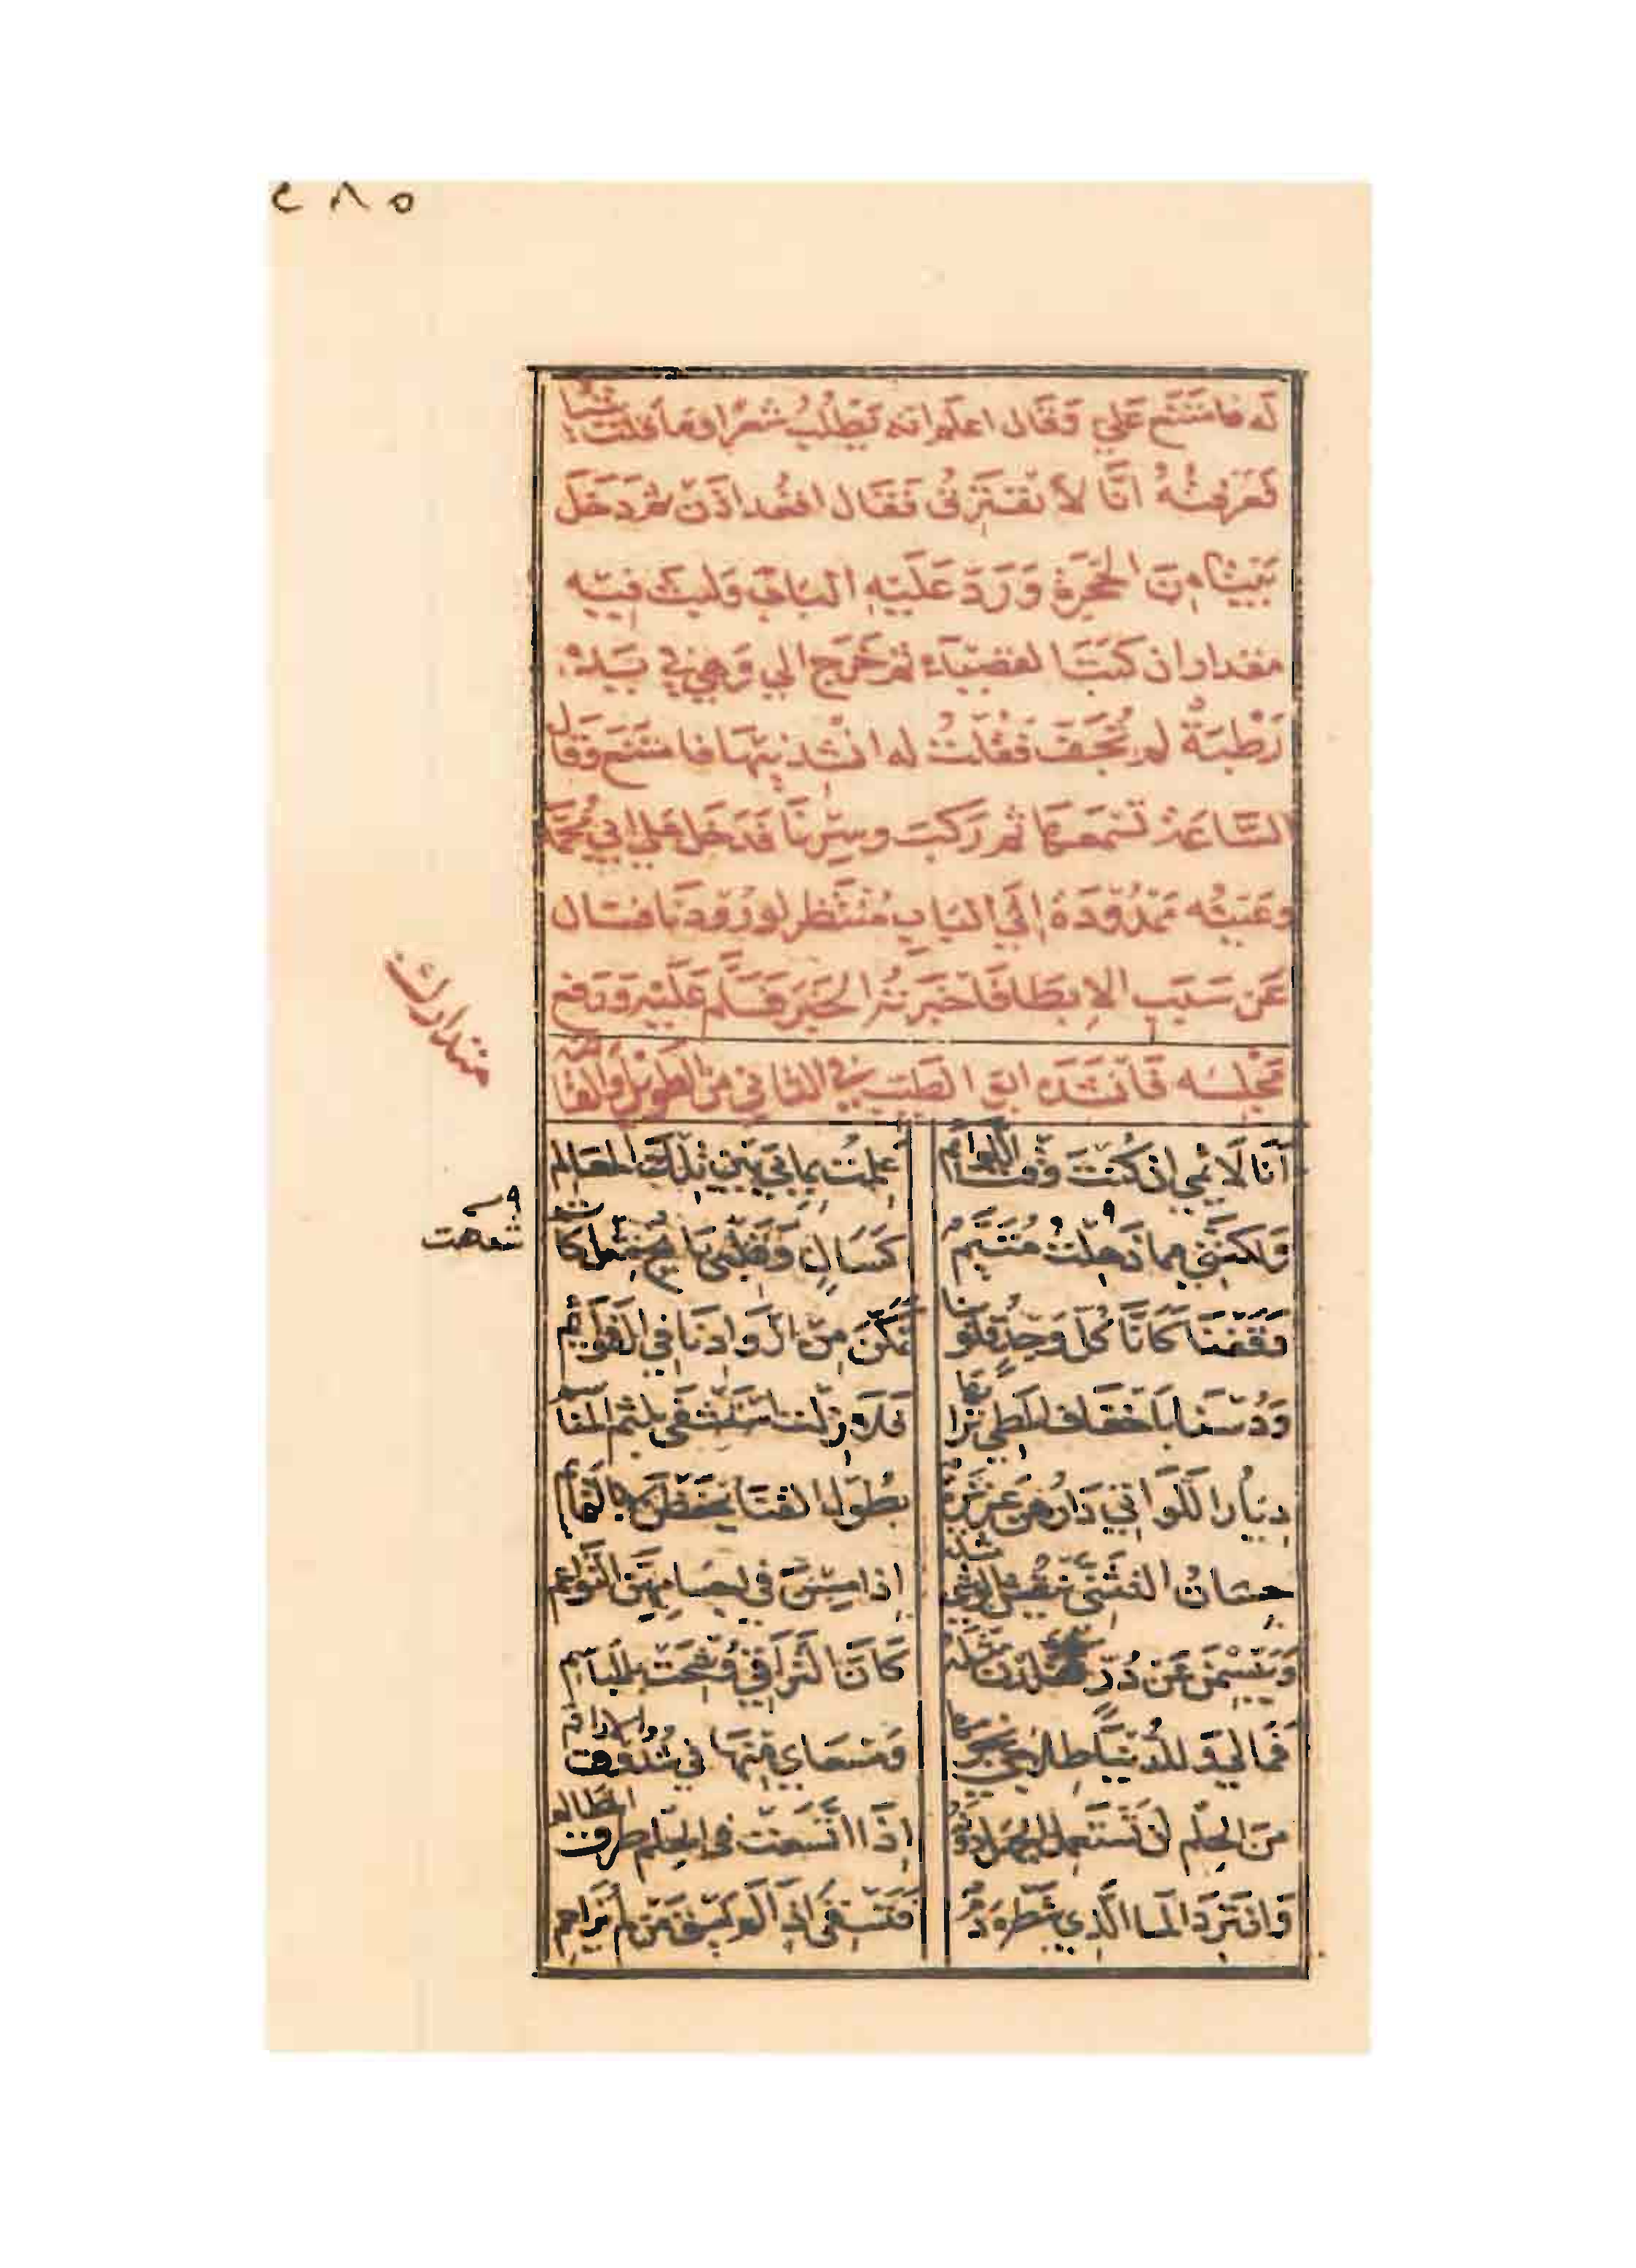 ٢٨٥
له فامتنع علي وقال اعلم انه يطلب شعرا وما قلت شيئا
فَعَرفتُهُ انَّا لا نفترق فقال اقعد اذن ثم دَخَلَ
بَيتا مِنَ الحُجرة وَرَدَّ عَلَيهِ البابَ ولبث فيه
مقدار ان كتبَ القصيدة ثم خرج الي وَهي في يَده
رَطْبَةٌ لم تُجَفَ فقلتُ له انشدنيها فامتنع وقال
السَّاعَة تسمعها ثم ركبَ وسِرنَا فدَخَل علي ابي مُحَمَّد
وعَينُه مَمْدُودَة إلي البَابِ مُنتَظِر لورُودنا فسال
عَن سَبَبِ الابطا فاخبرته الخَبرَ فسلّم عَلَيْه ورَفع
مَجْلِسَه فَانشَدَه ابو الطَيب في الثاني من الطويل والقافية
متدارك
أنَا لَائمي ان كُنتَ وقتَ اللَّوائم
عَلِمتُ بِما بي بَينَ تِلكَ المَعَالم
وَلكنني مما ذَهِلتُ مُتَيَّم
كَسَالٍ وقلبي بَائح مثل كاتم
شدهت
وَقَفنَا كَانَّا كل وَجدِ قلوبنا
تَمكّنَ مِنْ اذوَادِنَا فِي القوائم
وَدُسْنَا بِاخفَاف المَطِي تُرابها
فَلَا زِلت استَشفي بلثم المناسم
دِيَارُ اللَوَاتي دَارُهُنَّ عَزيزة
بطُول القنَا يُحفَظنَ لا بالتمائم
حِسَانُ التثَنِّي يَنقُشُ الوشي مثله
إذا مِسْنَ في اجسامِهِنَّ النَواعم
وَيَبْسِمنَ عَن دُرٍّ تقلدن مثله
كَانَّ التراقي وُشِّحَت بالمباسم
فَما لي وَللدُنيَا طِلابي نجومها
وَمَسعاي مِنهَا في شُدوق الاراقم
مِنَ الحِلْم أن تَستَعمل الجهل دونه
إذَا اتسَعَت في الحِلم طرق المظالم
وَان تَرِدَ المَا الَّذِي شَطره دمٌ
فَتَسقي اذَا لَم يُسْقَ مَن لم يُزاحم